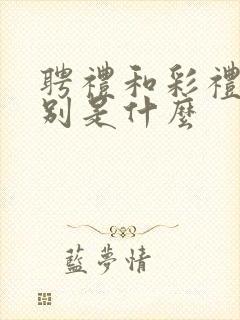 聘禮和彩禮
別是什麼
藍夢情